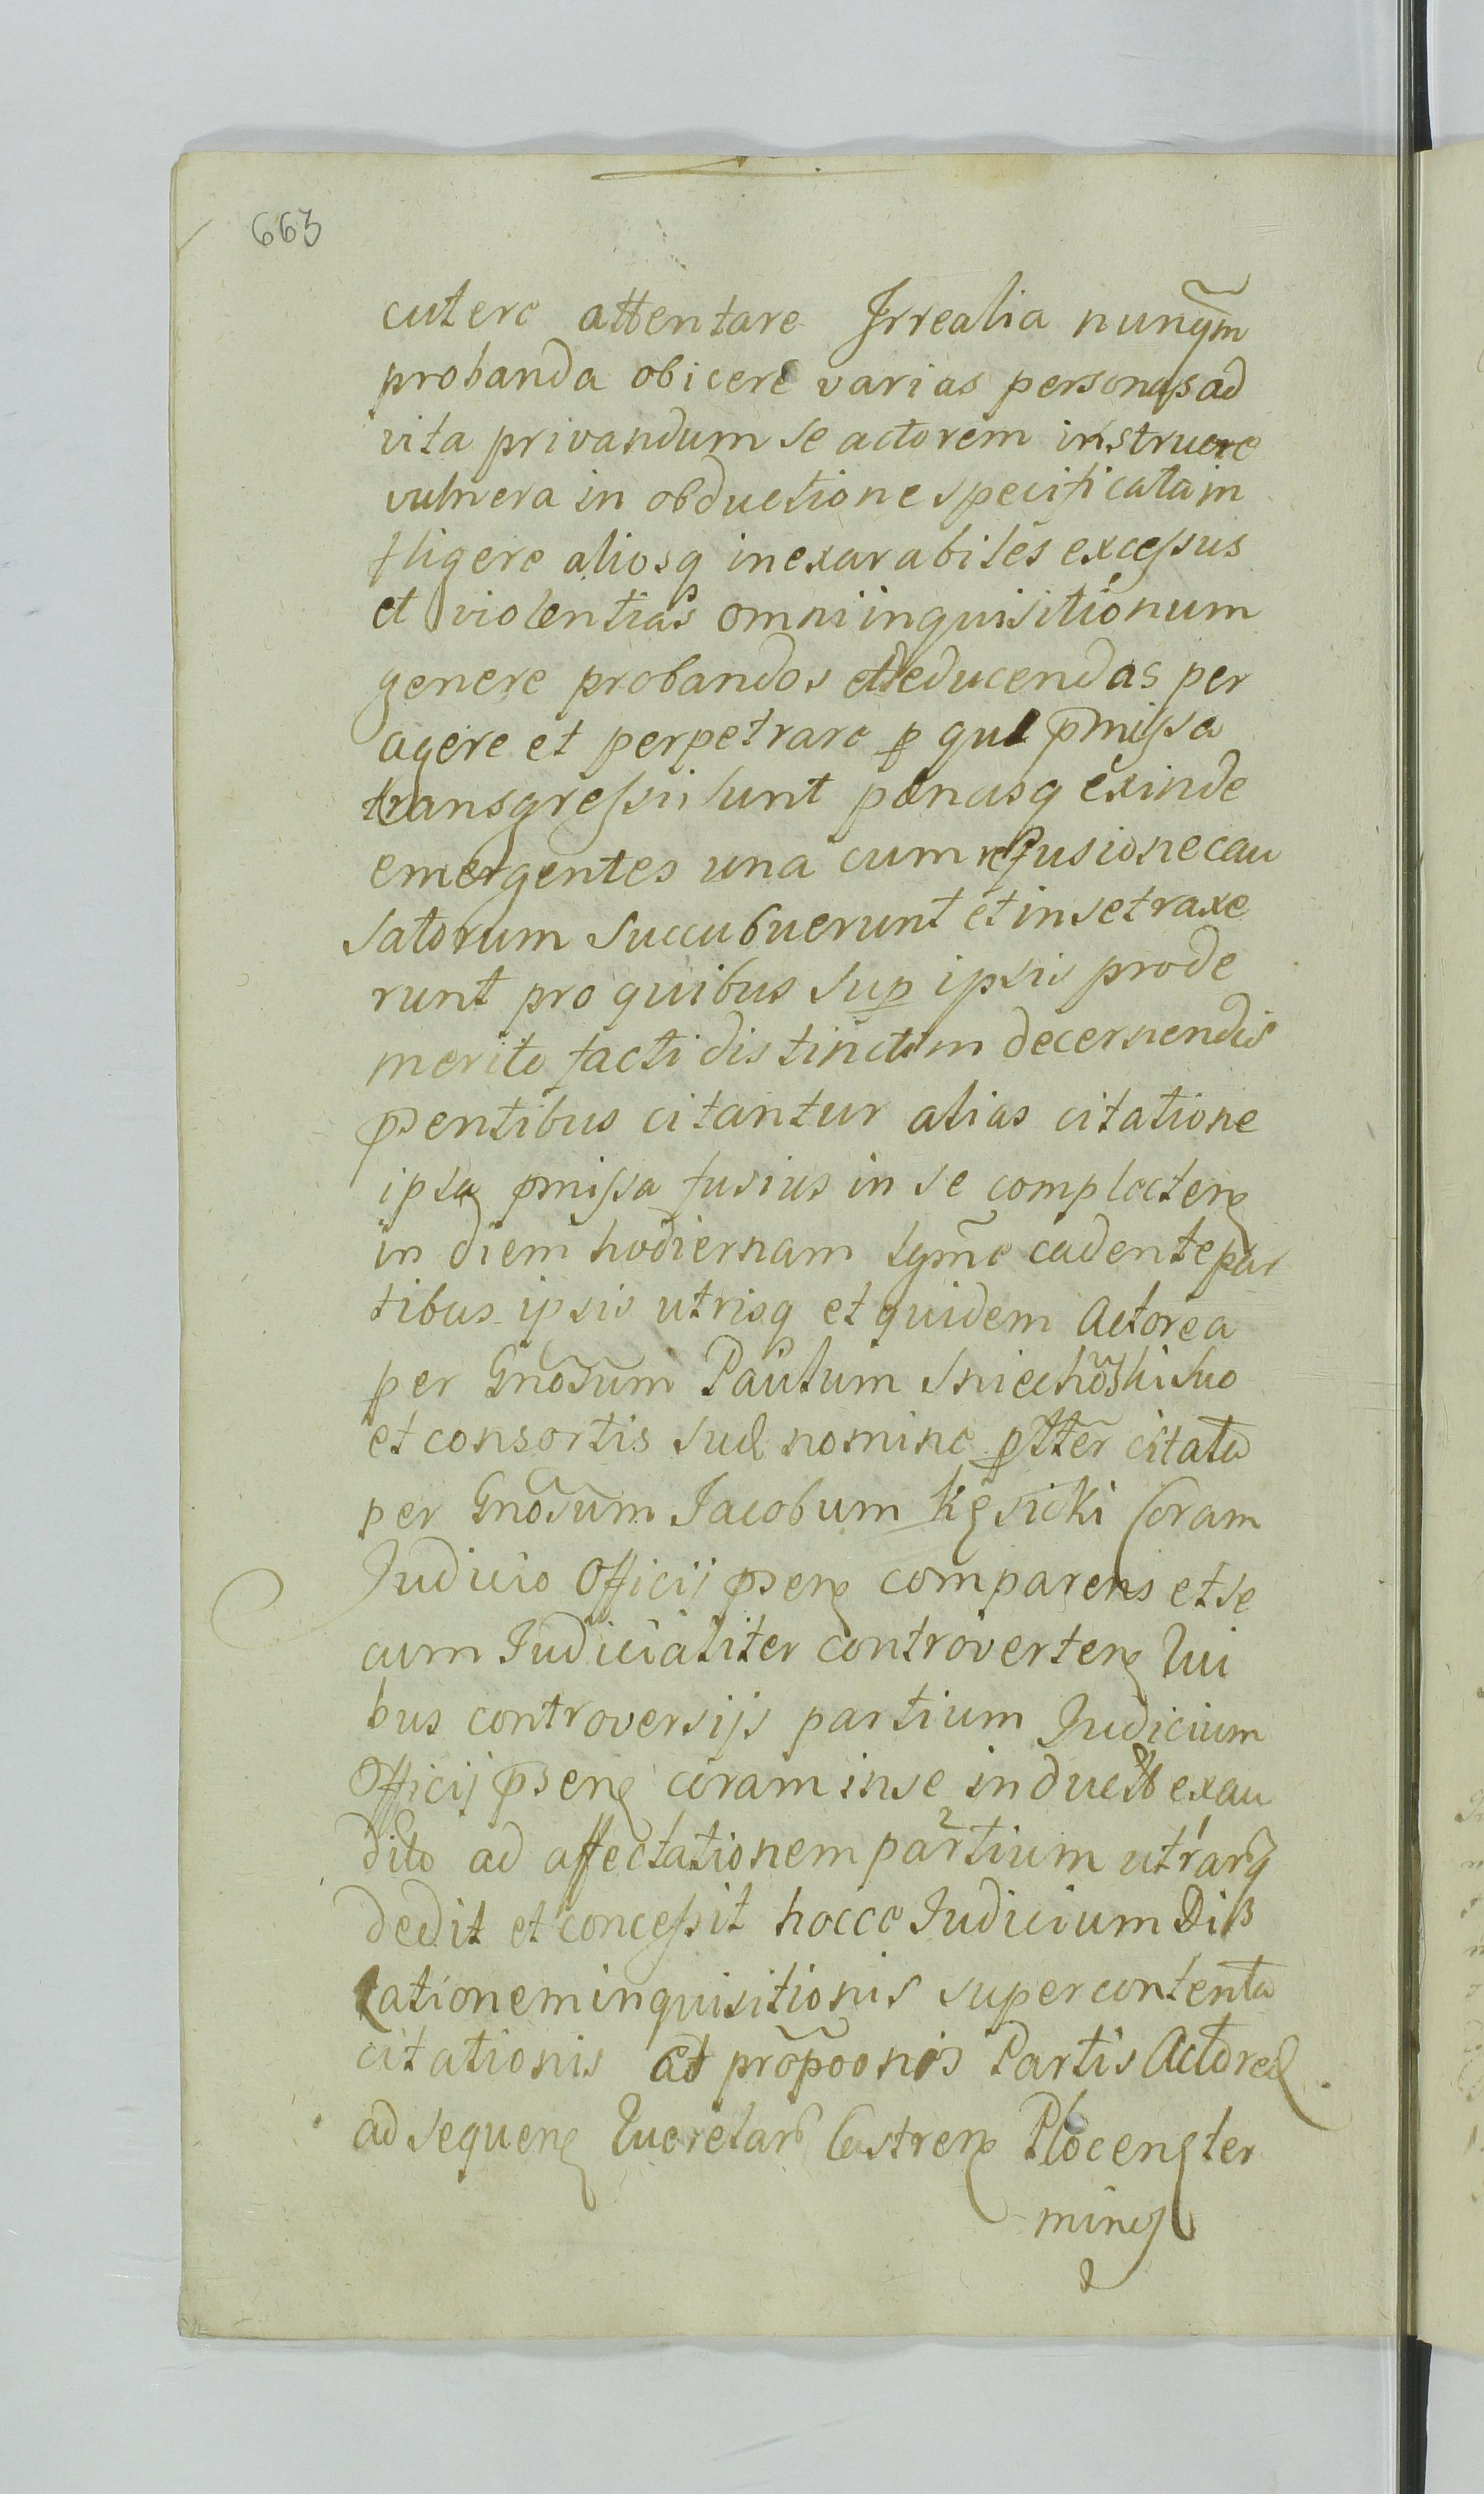 663
cutere attentare Irrealia nunq̃m
probanda obicere varias personas ad
vita privandum se actorem instruere
vulnera in obductione specificata in
fligere aliosq inexarabiles excessus
et violentias omni inquisitionum
genere probandos et deducendas per
agere et perpetrare p quæ p̃missa
transgressi sunt pœnasq exinde
emergentes una cum refusione cau
satorum succubuerunt et in se traxe
runt pro quibus sup ipsis prode
merito facti distinctim decernendis
p̃sentibus citantur alias citatione
ipsa p̃missa fusius in se complecteñ
in diem hodiernam lgm̃e cadente par
tibus ipsis utrisq et quidem Actorea
per Gnosum Paulum Sniechoski suo
et consortis suæ nomine ptter citata
per Gnosum Jacobum Kęsicki Coram
Judicio Officij p̃sen comparens et se
cum Judicialiter controverten Qui
bus controversijs partium Judicium
Officij p̃sen coram in se induct exau
ditis ad affectationem partium utrarq
dedit et concessit hocce Judicium Di
lationem inquisitionis super contenta
citationis ad propõonis Partis Actoreæ
ad sequen Querelar Castren Plocen ter
minos